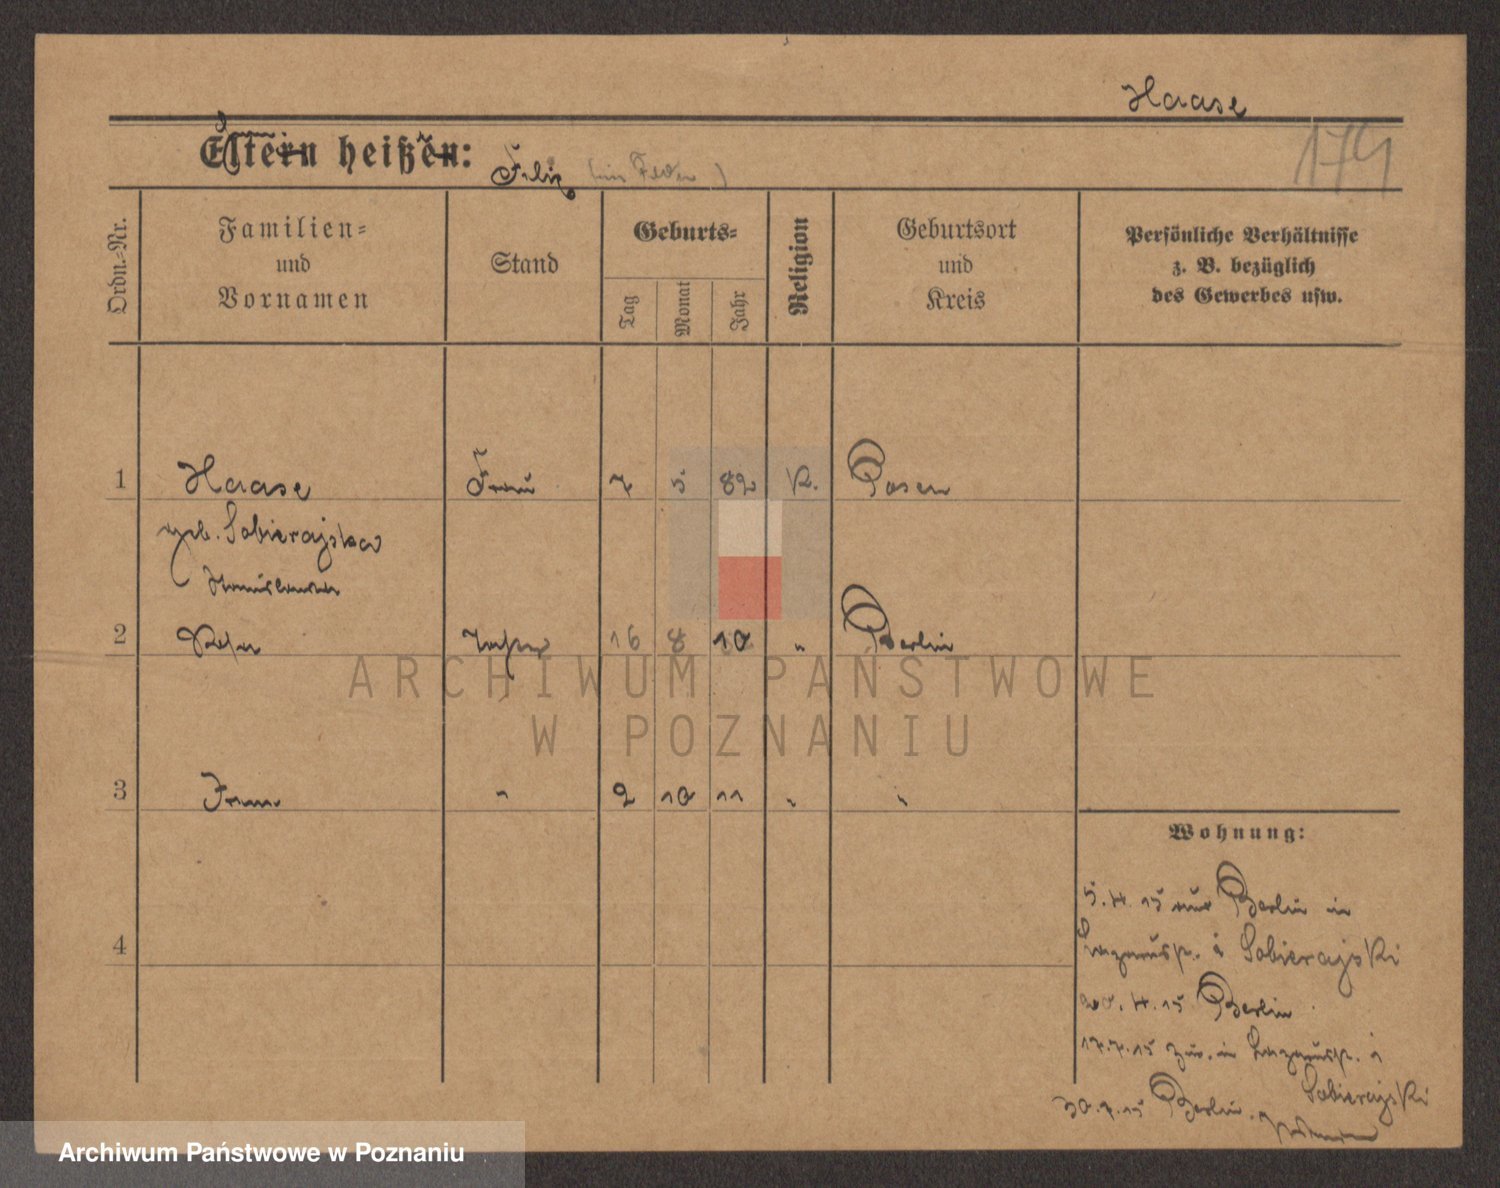 Haase
Eltern heißen:
Felix
174
Ordn.-Nr.
Familien-
und
Vornamen
Stand
Geburts-
Tag
Monat
Jahr
Religion
Geburtsort
und
Kreis
Persönliche Verhältnisse
z. B. bezüglich
des Gewerbes usw.
1 Haase Frau 7 5 82 K. Posen
geb. Sobierajska
Stanislawa
2 16 8 10 " Berlin
3 " 2 10 11 " "
Wohnung:
5. 4. 15 aus Berlin in
Lazarusstr. Sobierajski
4
20. 4. 15 Berlin
17.7.15 zur. in Lazarusstr.
Sobierajski
30.7.15 Berlin.
ARCHIWUM PAŃSTWOWE
W POZNANIU
Archiwum Państwowe w Poznaniu